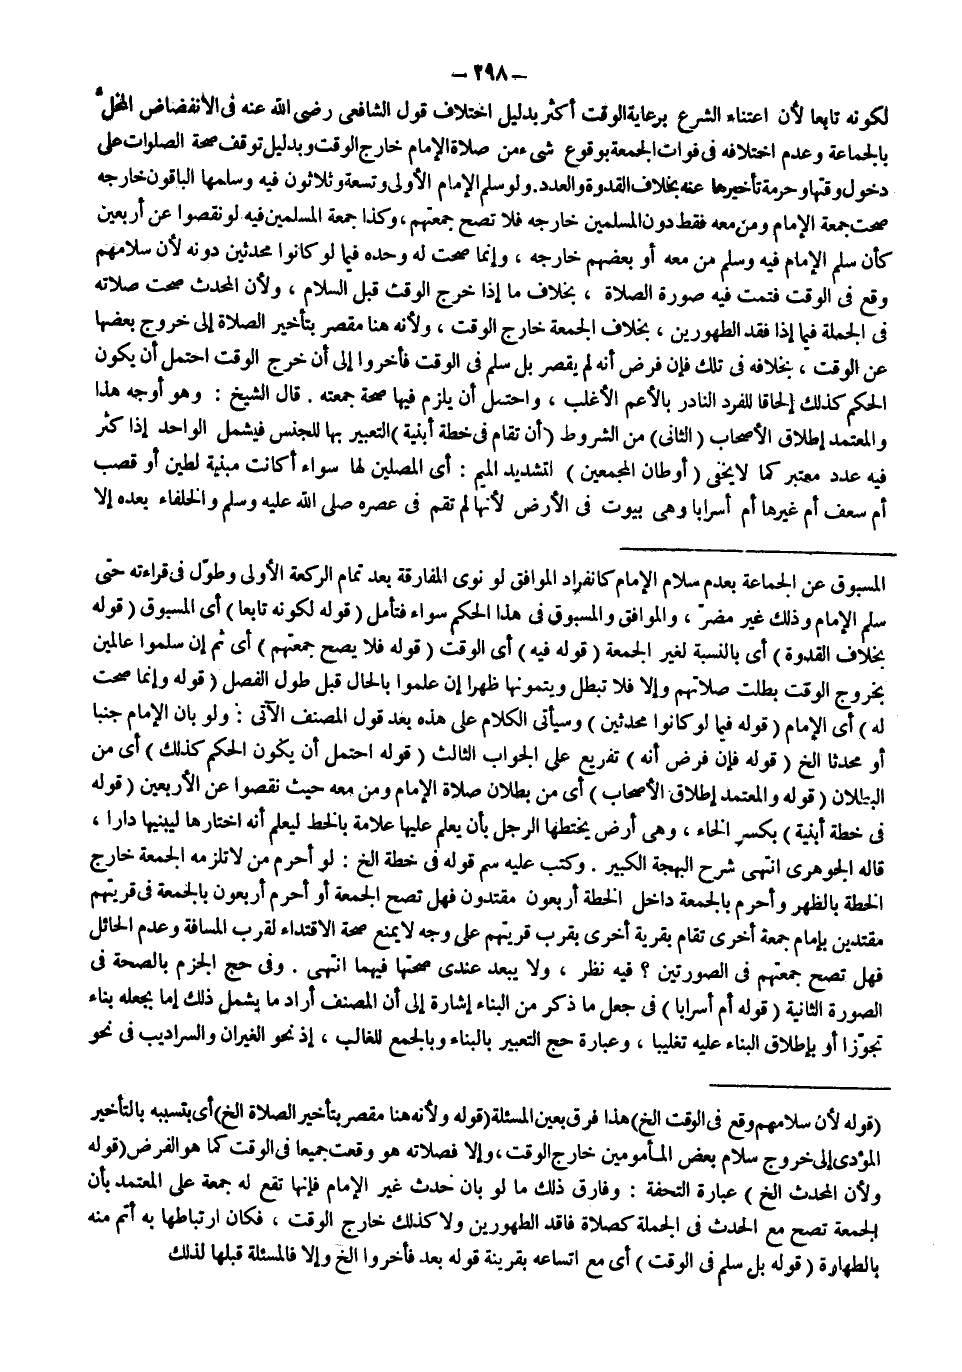 — ٢٩٨ —
لكونه تابعا لأن اعتناء الشرع برعاية الوقت أكثر بدليل اختلاف قول الشافعى رضى الله عنه فى الانفضاض المخل
بالجماعة وعدم اختلافه فى فوات الجمعة بوقوع شىء من صلاة الإمام خارج الوقت وبدليل توقف صحة الصلوات على
دخول وقتها وحرمة تأخيرها عنه بخلاف القدوة والعدد. ولو سلم الإمام الأولى وتسعة وثلاثون فيه وسلمها الباقون خارجه
صحت جمعة الإمام ومن معه فقط دون المسلمين خارجه فلا تصح جمعتهم، وكذا جمعة المسلمين فيه لو نقصوا عن أربعين
كأن سلم الإمام فيه وسلم من معه أو بعضهم خارجه ، وإنما صحت له وحده فيما لو كانوا محدثين دونه لأن سلامهم
وقع فى الوقت فتمت فيه صورة الصلاة ، بخلاف ما إذا خرج الوقت قبل السلام ، ولأن المحدث صحت صلاته
فى الجملة فيما إذا فقد الطهورين ، بخلاف الجمعة خارج الوقت ، ولأنه هنا مقصر بتأخير الصلاة إلى خروج بعضها
عن الوقت ، بخلافه فى تلك فإن فرض أنه لم يقصر بل سلم فى الوقت فأخروا إلى أن خرج الوقت احتمل أن يكون
الحكم كذلك إلحاقا للفرد النادر بالأعم الأغلب ، واحتمل أن يلزم فيها صحة جمعته . قال الشيخ : وهو أوجه هذا
والمعتمد إطلاق الأصحاب (الثانى) من الشروط (أن تقام فى خطة أبنية) التعبير بها للجنس فيشمل الواحد إذا كثر
فيه عدد معتبر كما لا يخفى ( أوطان المجمعين ) لتشديد الميم : أى المصلين لها سواء أكانت مبنية لطين أو قصب
أم سعف أم غيرها أم أسرابا وهى بيوت فى الأرض لأنها لم تقم فى عصره صلى الله عليه وسلم والخلفاء بعده إلا
المسبوق عن الجماعة بعدم سلام الإمام كانفراد الموافق لو نوى المفارقة بعد تمام الركعة الأولى وطوّل فى قراءته حتى
سلم الإمام وذلك غير مضرّ ، والموافق والمسبوق فى هذا الحكم سواء فتأمل ( قوله لكونه تابعا ) أى المسبوق ( قوله
بخلاف القدوة ) أى بالنسبة لغير الجمعة ( قوله فيه ) أى الوقت ( قوله فلا يصح جمعتهم ) أى ثم إن سلموا عالمين
بخروج الوقت بطلت صلاتهم وإلا فلا تبطل ويتمونها ظهرا إن علموا بالحال قبل طول الفصل ( قوله وإنما صحت
له ) أى الإمام ( قوله فيما لو كانوا محدثين ) وسيأتى الكلام على هذه بعد قول المصنف الآتى : ولو بان الإمام جنبا
أو محدثا الخ ( قوله فإن فرض أنه ) تفريع على الجواب الثالث ( قوله احتمل أن يكون الحكم كذلك ) أى من
البطلان ( قوله والمعتمد إطلاق الأصحاب ) أى من بطلان صلاة الإمام ومن معه حيث نقصوا عن الأربعين ( قوله
فى خطة أبنية ) بكسر الخاء ، وهى أرض يختطها الرجل بأن يعلم عليها علامة بالخط ليعلم أنه اختارها ليبنيها دارا ،
قاله الجوهرى انتهى شرح البهجة الكبير . وكتب عليه سم قوله فى خطة الخ : لو أحرم من لا تلزمه الجمعة خارج
الخطة بالظهر وأحرم بالجمعة داخل الخطة أربعون مقتدون فهل تصح الجمعة أو أحرم أربعون بالجمعة فى قريتهم
مقتدين بإمام جمعة أخرى تقام بقرية أخرى بقرب قريتهم على وجه لا يمنع صحة الاقتداء لقرب المسافة وعدم الحائل
فهل تصح جمعتهم فى الصورتين ؟ فيه نظر ، ولا يبعد عندى صحتها فيهما انتهى . وفى حج الجزم بالصحة فى
الصورة الثانية ( قوله أم أسرابا ) فى جعل ما ذكر من البناء إشارة إلى أن المصنف أراد ما يشمل ذلك إما بجعله بناء
تجوّزا أو بإطلاق البناء عليه تغليبا ، وعبارة حج التعبير بالبناء وبالجمع للغالب ، إذ نحو الغيران والسراديب فى نحو
(قوله لأن سلامهم وقع فى الوقت الخ) هذا فرق بعين المسئلة (قوله ولأنه هنا مقصر بتأخير الصلاة الخ) أى بتسببه بالتأخير
المؤدى إلى خروج سلام بعض المأمومين خارج الوقت، وإلا فصلاته هو وقعت جميعا فى الوقت كما هو الفرض (قوله
ولأن المحدث الخ ) عبارة التحفة : وفارق ذلك ما لو بان حدث غير الإمام فإنها تقع له جمعة على المعتمد بأن
الجمعة تصح مع الحدث فى الجملة كصلاة فاقد الطهورين ولا كذلك خارج الوقت ، فكان ارتباطها به أتم منه
بالطهارة ( قوله بل سلم فى الوقت ) أى مع اتساعه بقرينة قوله بعد فأخروا الخ وإلا فالمسئلة قبلها لذلك